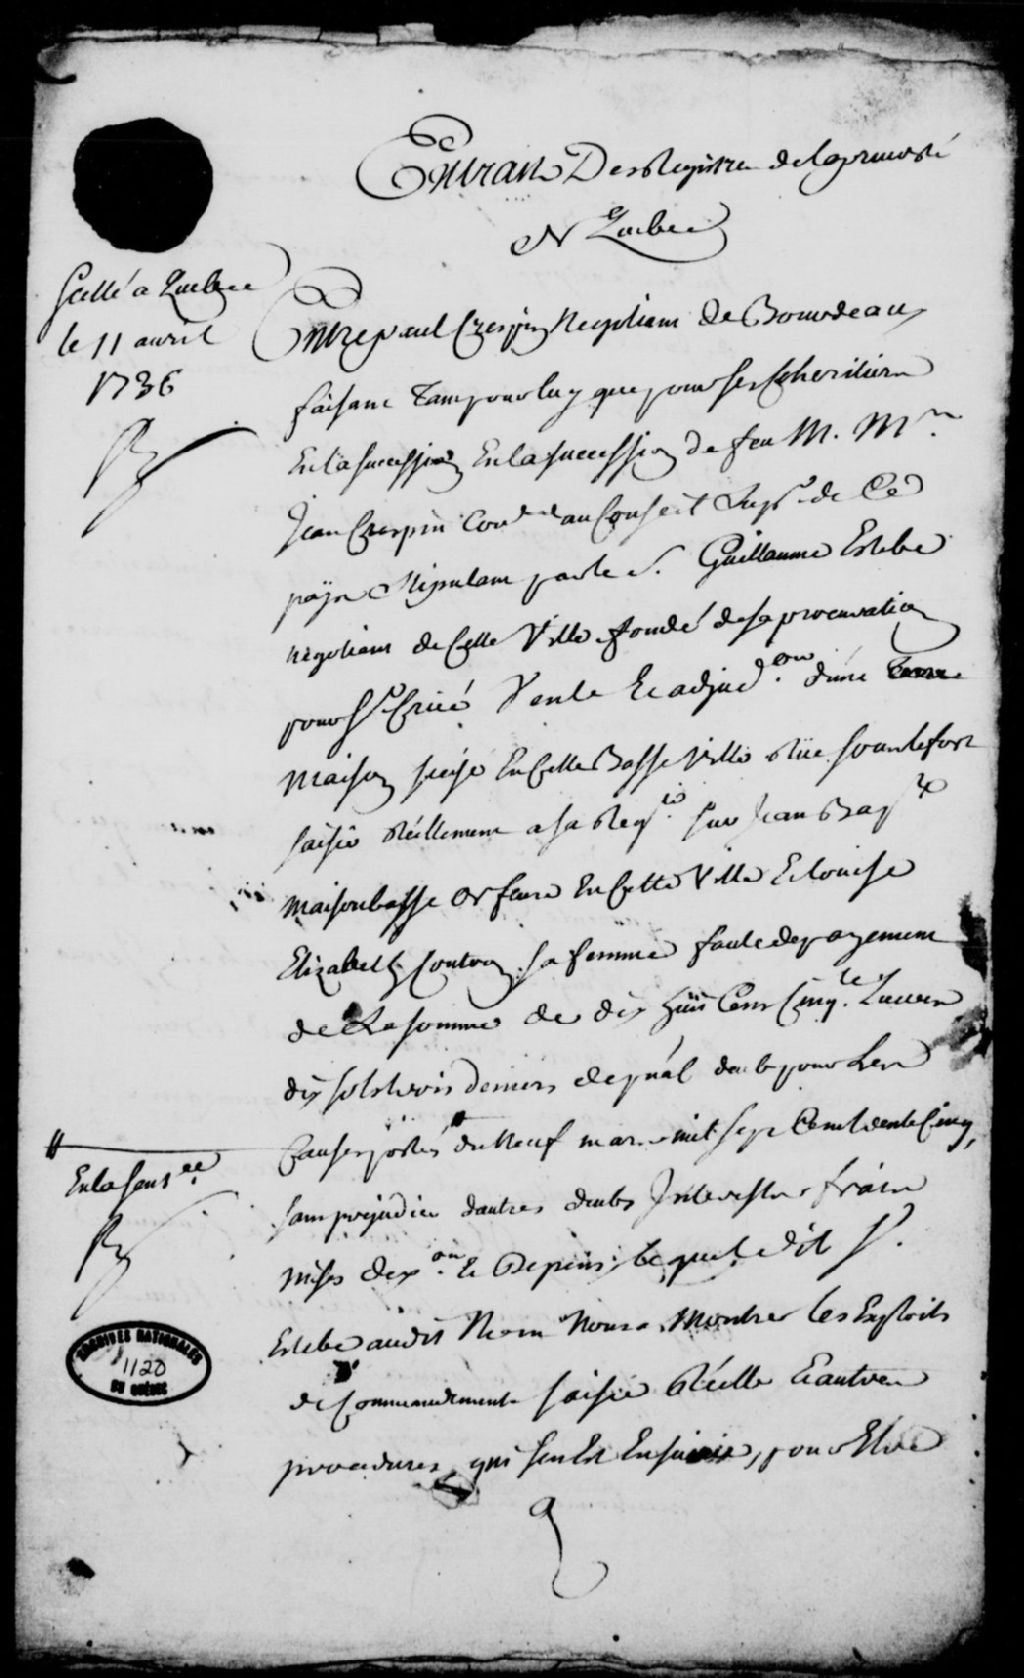 Extrait Des Registre de la prevosté
de Quebec
Scellé a Quebec
le 11 avril
1736
Entre paul Crespin Negotiant de Bourdeaux
faisant Tant pour luy que pour ses Coheritiers
En la succession En la succession de feu M. Mre.
Jean Crespin Conr. au Conseil Supr. de Ce
païs Stipulant par le S. Guillaume Estebe
negotiant de Cette Ville fondé de sa procuration
pour Criée Vente Et adjudon. d'une
Maison scise En Cette Basse Ville Rüe Saulefort
saisie Réellement a sa Reqte. sur Jean Bapte.
maisonbasse orfevre En Cette Ville Et louise
Elizabeth sa femme faute de payement
de La somme de dix huit Cent Cinqte. Livres
dix sols trois deniers de pnâl deub pour Les
Causes portés du Neuf mars mil sept Cent trente Cinq,
En la sentce.
sans prejudice dautres deubs Interests frais
mises dexon. Et Depens, lequel dit Sr.
Estebe audit Nom Nous a Montrer les Exploits
de Commandement saisie Réelle Et autres
procedures qui sen Est Ensuivie, pour Etre
ARCHIVES NATIONALES
1120
DU QUÉBEC